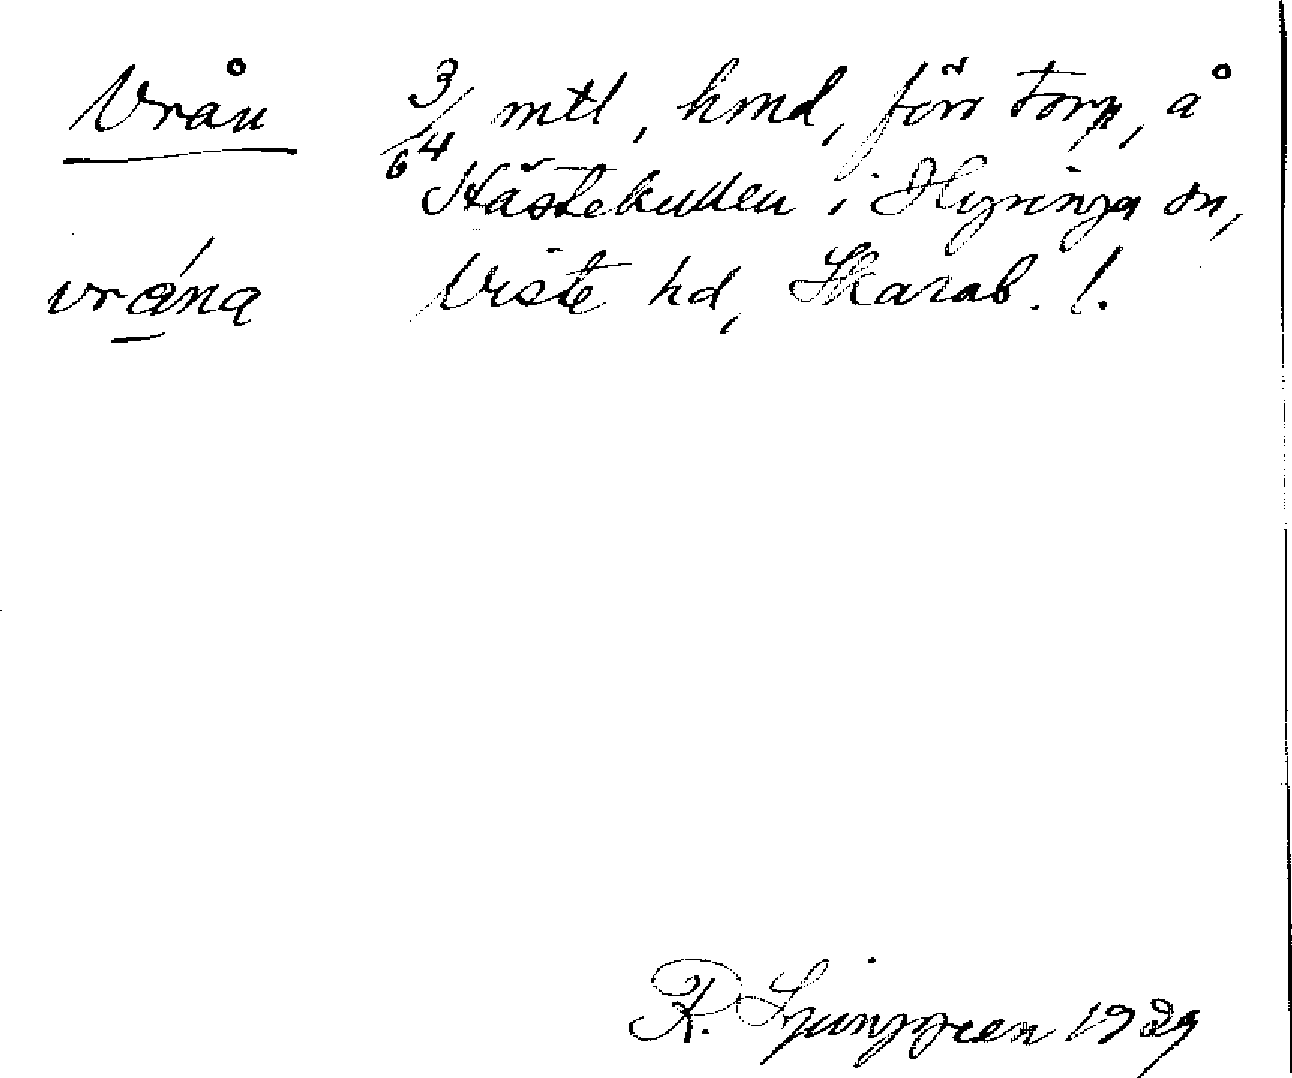 Vrån 3/64 mtl, hmd, förr torp, å
Hästekullen i Hyringa sn,
vrána Viste hd, Skarab. l.
R. Ljunggren 1929